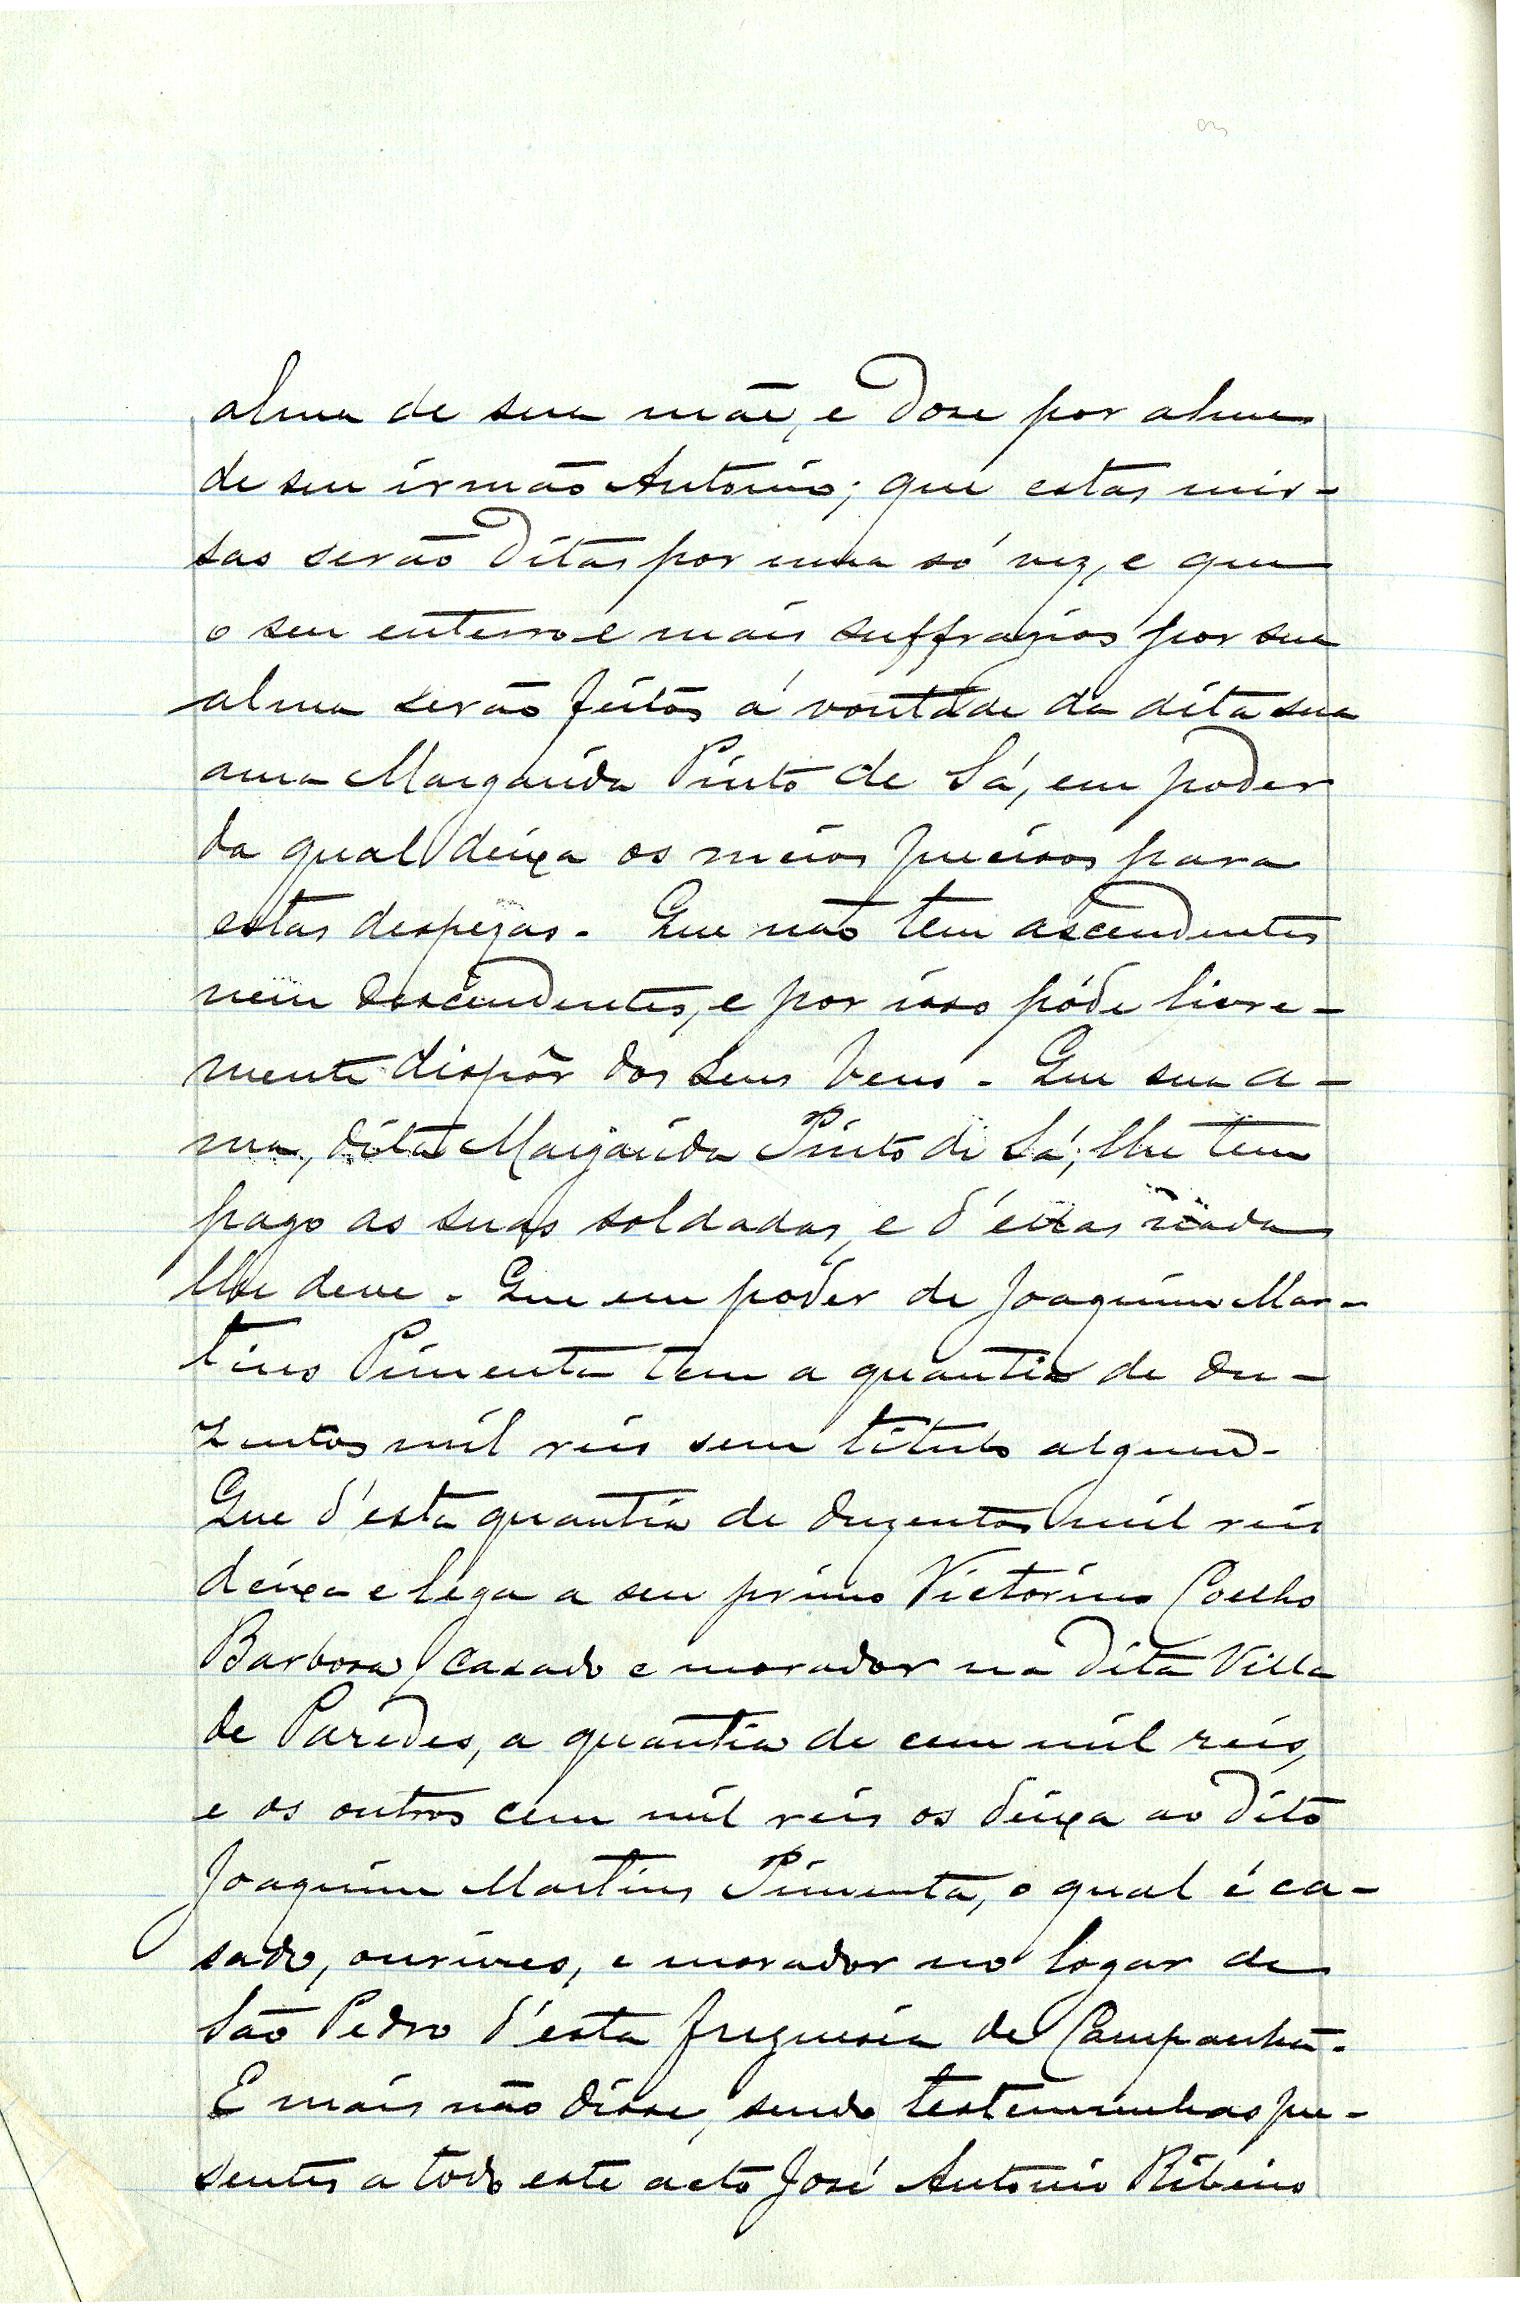 alma de sua mãe, e doze por alma
de seu irmão Antonio; que estas mis-
sas serão ditas por uma só vez, e que
o seu enterro e mais suffragios por sua
alma serão feitos á vontade da dita sua
ama Margarida Pinto de Sá, em poder
da qual deixa os meios precisos para
estas despezas. Que não tem ascendentes
nem descendentes, e por isso póde livre-
mente dispôr dos seus bens. Que sua a-
ma, dita Margarida Pinto de Sá, lhe tem
pago as suas soldadas, e d'ellas nada
lhe deve. Que em poder de Joaquim Mar-
tins Pimenta tem a quantia de du-
zentos mil reis sem titulo algum.
Que d'esta quantia de duzentos mil reis
deixa e lega a seu primo Victorino Coelho
Barbosa, casado e morador na dita Villa
de Paredes, a quantia de cem mil reis,
e os outros cem mil reis os deixa ao dito
Joaquim Martins Pimenta, o qual é ca-
sado, ourives, e morador no logar de
São Pedro d'esta freguesia de Campanhã.
E mais não disse, sendo testemunhas pre-
sentes a todo este acto José Antonio Ribeiro